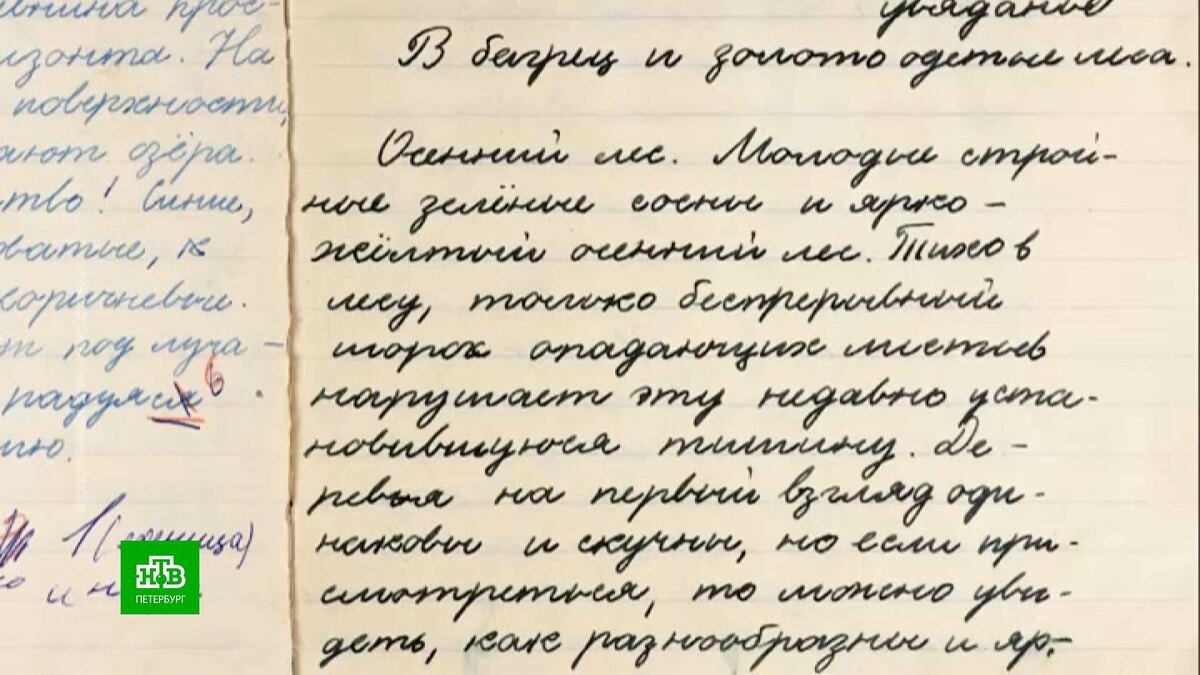 внина прос-
изонта. На
поверхности,
ают озёра.
тво! Синие,
ватые, к
коричневые.
т под луча-
радуяся в
ию.
1 (единица)
и н
увяданье
В багрец и золото одетые леса.
Осенний лес. Молодые строй-
ные зелёные сосны и ярко-
жёлтый осенний лес. Тихо в
лесу, только беспрерывный
шорох опадающих листьев
нарушает эту недавно уста-
новившуюся тишину. Де-
ревья на первый взгляд оди-
наковы и скучны, но если при-
смотреться, то можно уви-
деть, как разнообразны и яр-
НТВ
ПЕТЕРБУРГ